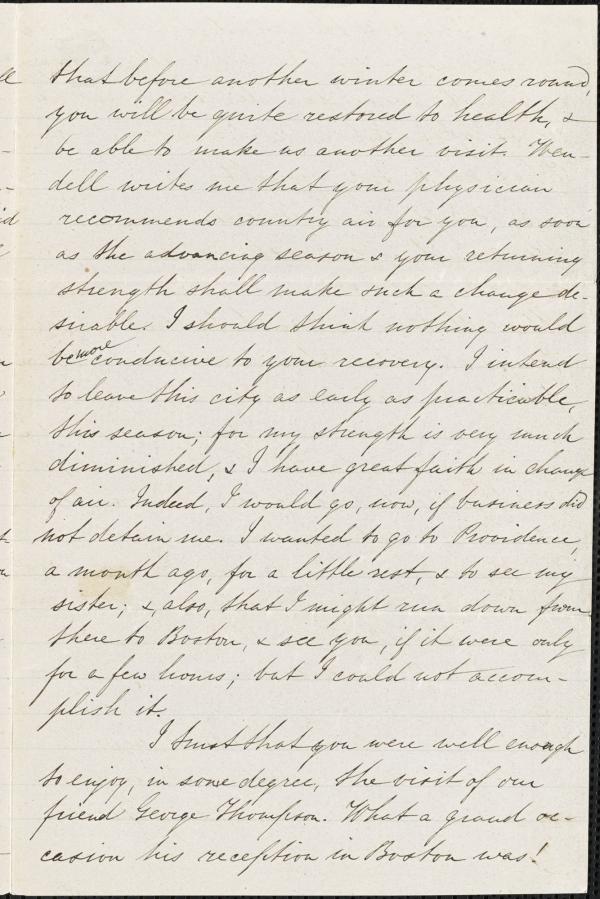 that before another winter comes round,
you will be quite restored to health, &
be able to make us another visit. Wen-
dell writes me that your physician
recommends country air for you, as soon
as the advancing season & your returning
strength shall make such a change de-
sirable. I should think nothing would
be more conducive to your recovery. I intend
to leave this city as early as practicable,
this season; for my strength is very much
diminished, & I have great faith in change
of air. Indeed, I would go, now, if business did
not detain me. I wanted to go to Providence,
a month ago, for a little rest, & to see my
sister; &, also, that I might run down from
there to Boston, & see you, if it were only
for a few hours; but I could not accom-
plish it.
I trust that you were well enough
to enjoy, in some degree, the visit of our
friend George Thompson. What a grand oc-
casion his reception in Boston was!